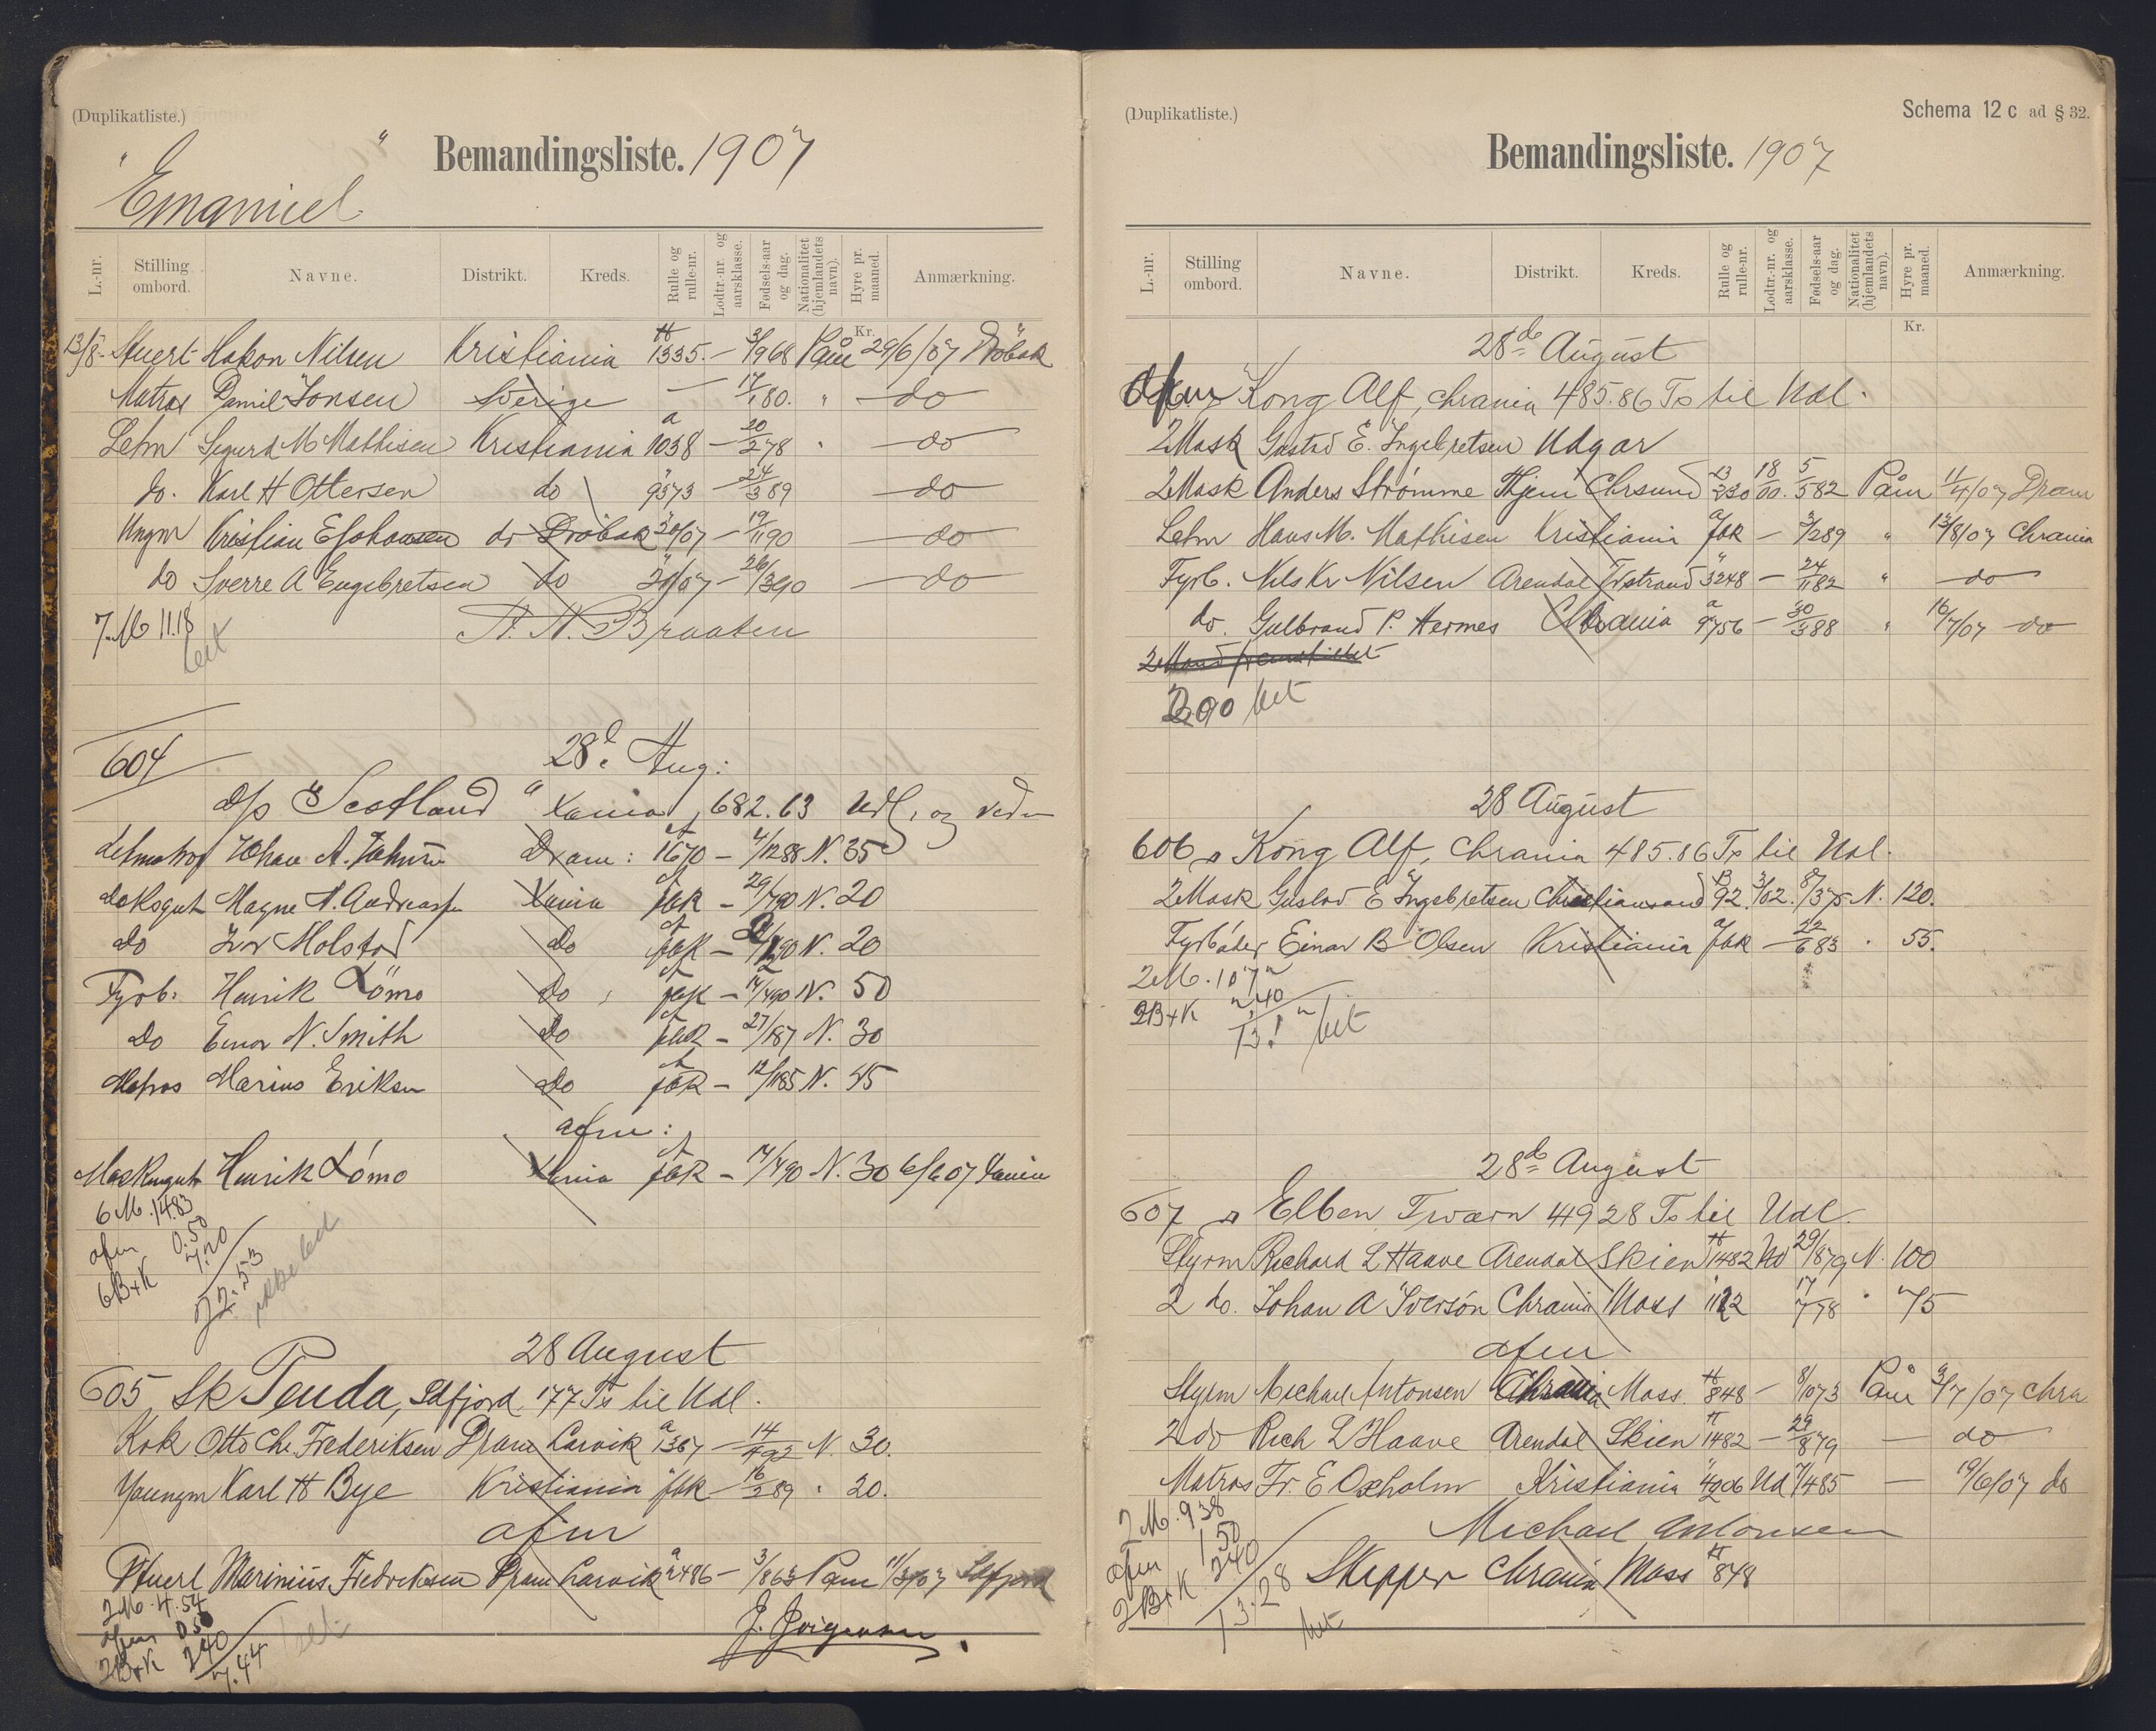 (Duplikatliste.)
Bemandingsliste. 1907
"Emanuel"
L.-nr. Stilling ombord. Navne. Distrikt. Kreds. Rulle og rulle-nr. Lodtr.-nr. og aarsklasse. Fødsels-aar og dag. Nationalitet (hjemlandets navn). Hyre pr. maaned. Anmærkning.
Kr.
13/8 Stuert Hakon Nilsen Kristiania A 1335 - 3/9 68 Påm 29/6/07 Dröbak
Matros Daniel Jonsen Sverige — 17/1 80 " — do
Letm Sigurd M Mathisen Kristiania a 1038 - 20/2 78 " — do
do. Karl H Ottersen do " 9573 - 24/3 89 — do
Ungm Kristian E Johansen do Dröbak " 30/07 - 19/1 90 — do
do Sverre A Engebretsen do " 21/07 - 26/3 90 — do
7.M 11.18
bet
A. N. Braaten
604
28d Aug:
D/s "Scotland" Xania, 682.63 Udl. og
Letmatros Johan A. Dram: A 1670 - 4/12 88 N. 35
Magne A. Xania A fok - 29/7 90 N. 20
do Ivar Molstad do A fok - 90 N. 20
Fyrb: Henrik Lömo do A fok - 14/4 90 N. 50
do Einar N. Smith do A fok - 27/1 87 N. 30
Matros Marius Eriksen do A fok - 12/11 85 N. 45
afm:
Henrik Lömo Xania A fok - 14/4 90 N. 30 6/6 07 Xania
6 M. 14.83
afm 0.50
6 B+K 7.20
22.53
28 August
605 Sk Tenda, Sdfjord 177 Ts til Udl.
Kok Otto Chr. Frederiksen Dram Larvik a 1367 - 14/4 92 N. 30.
Youngm Karl H Bye Kristiania " fok - 16/2 89 " 20.
afm
Stuert Marinius Fredriksen Dram Larvik a 2486 - 3/8 63 Påm 11/3/07 Sdfjord
2 M. 4.54
afm 0.50
2 B+K 2.40
7.44
bet
J. Jörgensen
(Duplikatliste.)
Schema 12 c ad § 32.
Bemandingsliste. 1907
L.-nr. Stilling ombord. Navne. Distrikt. Kreds. Rulle og rulle-nr. Lodtr.-nr. og aarsklasse. Fødsels-aar og dag. Nationalitet (hjemlandets navn). Hyre pr. maaned. Anmærkning.
Kr.
28de August
Kong Alf, Chrania 485.86 Ts til Udl.
2 Mask Gustav E. Ingebretsen Udgar
2 Mask Anders Strömme Hjem Chrsund 13 230 18/00. 5/5 82 Påm 11/4/07 Dram
Letm Hans M. Mathisen Kristiania a fok - 3/2 89 " 13/8/07 Chrania
Fyrb. Nils Kr Nilsen Arendal Tvstrand " 3248 - 24/11 82 " — do
do. Gulbrand P. Hermes Chrania a 9756 - 30/3 88 " 16/7/07 — do
2 Mand fremstillet
2.00 bet
28 August
606 Ds Kong Alf, Chrania 485.86 Ts til Udl.
2 Mask Gustav E Ingebretsen Christiansand B 92. 3/02. 8/3 75 N. 120.
Fyrböder Einar B Olsen Kristiania a fok - 22/6 83 " 55.
2 M. 10.7
2 B+K 2.40
13.1 bet
28de August
607 Ds Elben, Tværn 449 28 Ts til Udl.
Styrm Richard L Haave Arendal Skien A 1482 Ud 29/8 79 N. 100
2 do. Johan A Iversön Chrania Moss " 1122 17/7 78 " 75
afm
Styrm Michael Antonsen Chrania Moss. A 848 - 8/10 73 Påm 9/7/07 Chra
2 do Rich L Haave Arendal Skien A 1482 - 29/8 79 — do
Matros Fr. E Oxholm Kristiania " 4206 Ud 7/4 85 — 19/6/07 do
2 M. 9.38
afm 1.50
2 B+K 2.40
13.28
bet
Michael Antonsen
Skipper Chrania Moss A 848